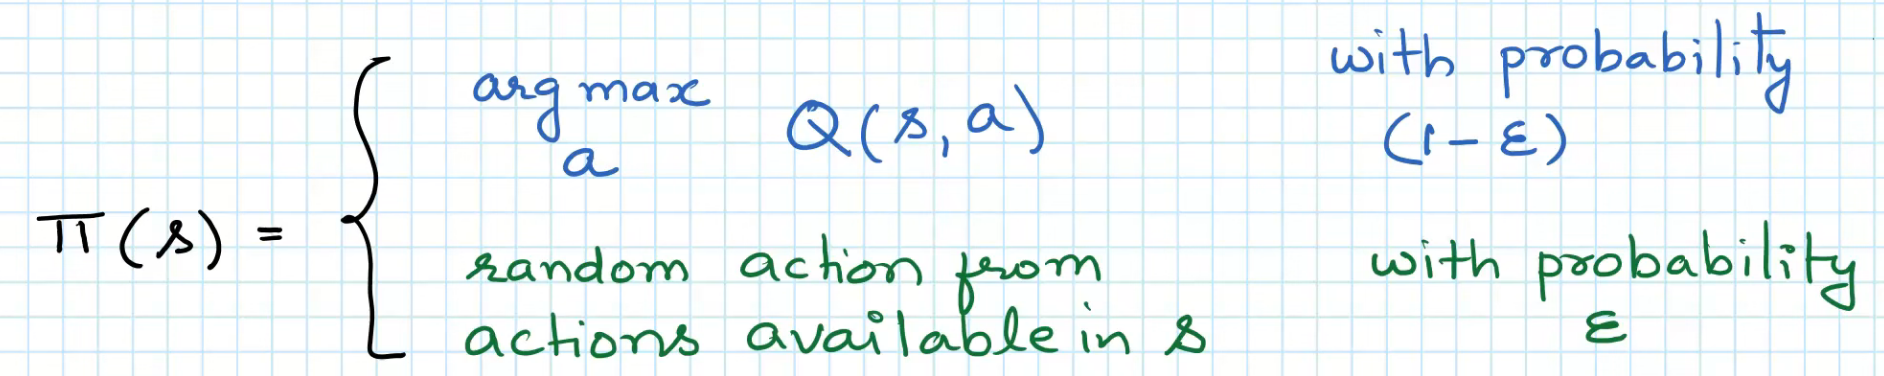 π(s) =
arg max Q(s, a)
a
with probability
(1 - ε)
random action from
actions available in s
with probability
ε